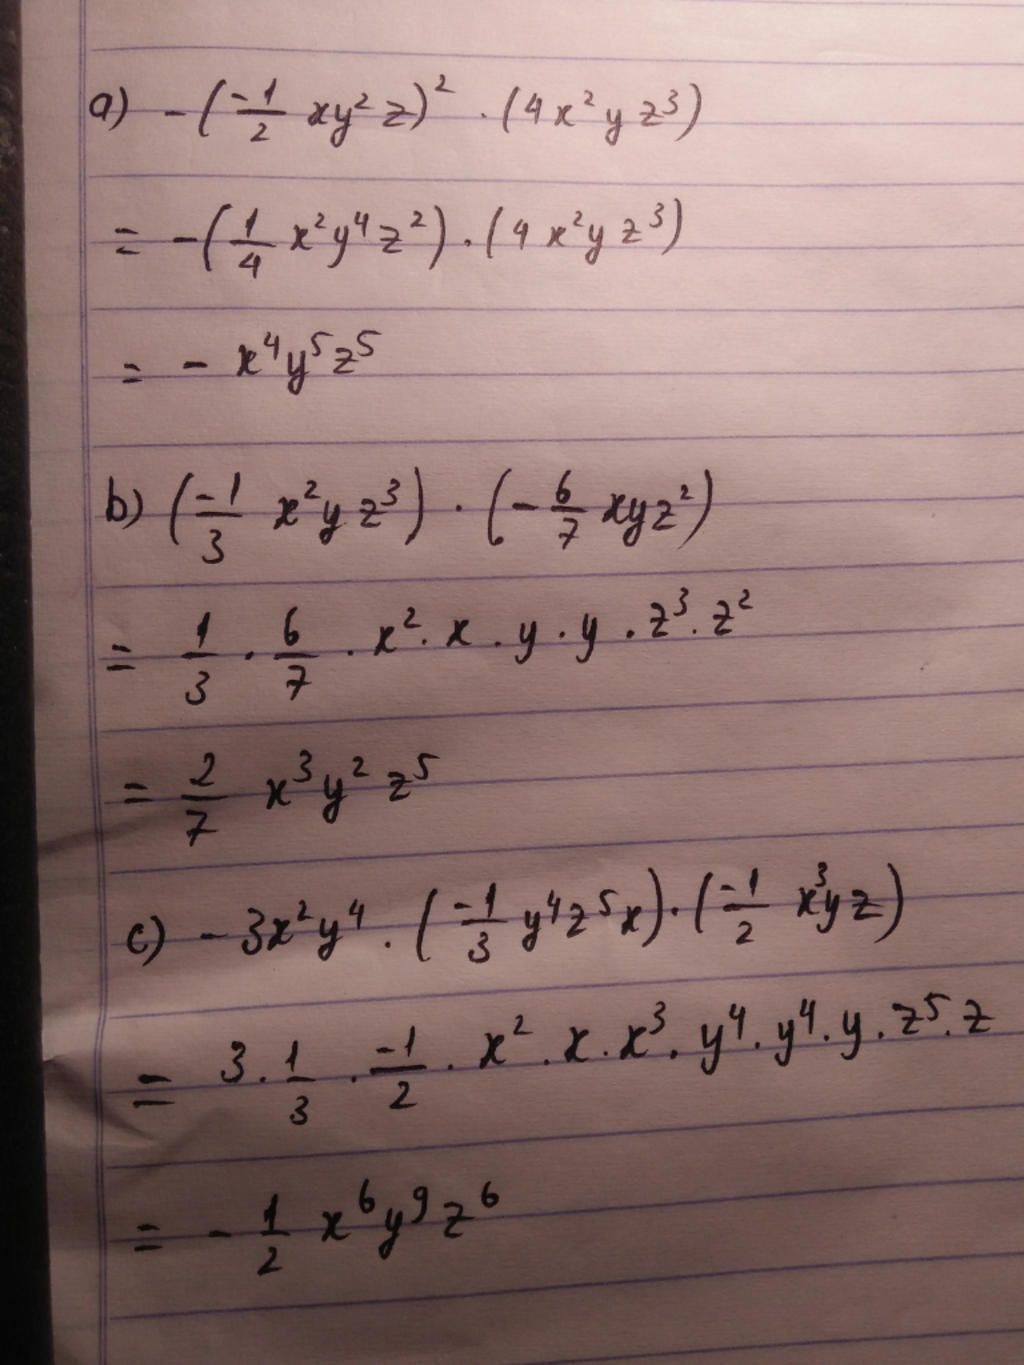 a) -(-1/2 xy²z)² · (4x²yz³)
= -(1/4 x²y⁴z²) · (4x²yz³)
= - x⁴y⁵z⁵
b) (-1/3 x²yz³) · (-6/7 xyz²)
= 1/3 · 6/7 · x² · x · y · y · z³ · z²
= 2/7 x³y²z⁵
c) -3x²y⁴ · (-1/3 y⁴z⁵x) · (-1/2 x³yz)
= 3 · 1/3 · -1/2 · x² · x · x³ · y⁴ · y⁴ · y · z⁵ · z
= -1/2 x⁶y⁹z⁶